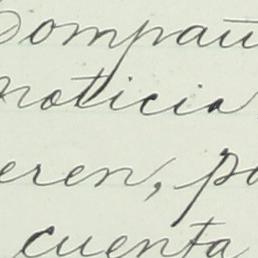 Compañí
noticia
eren, pa
cuenta